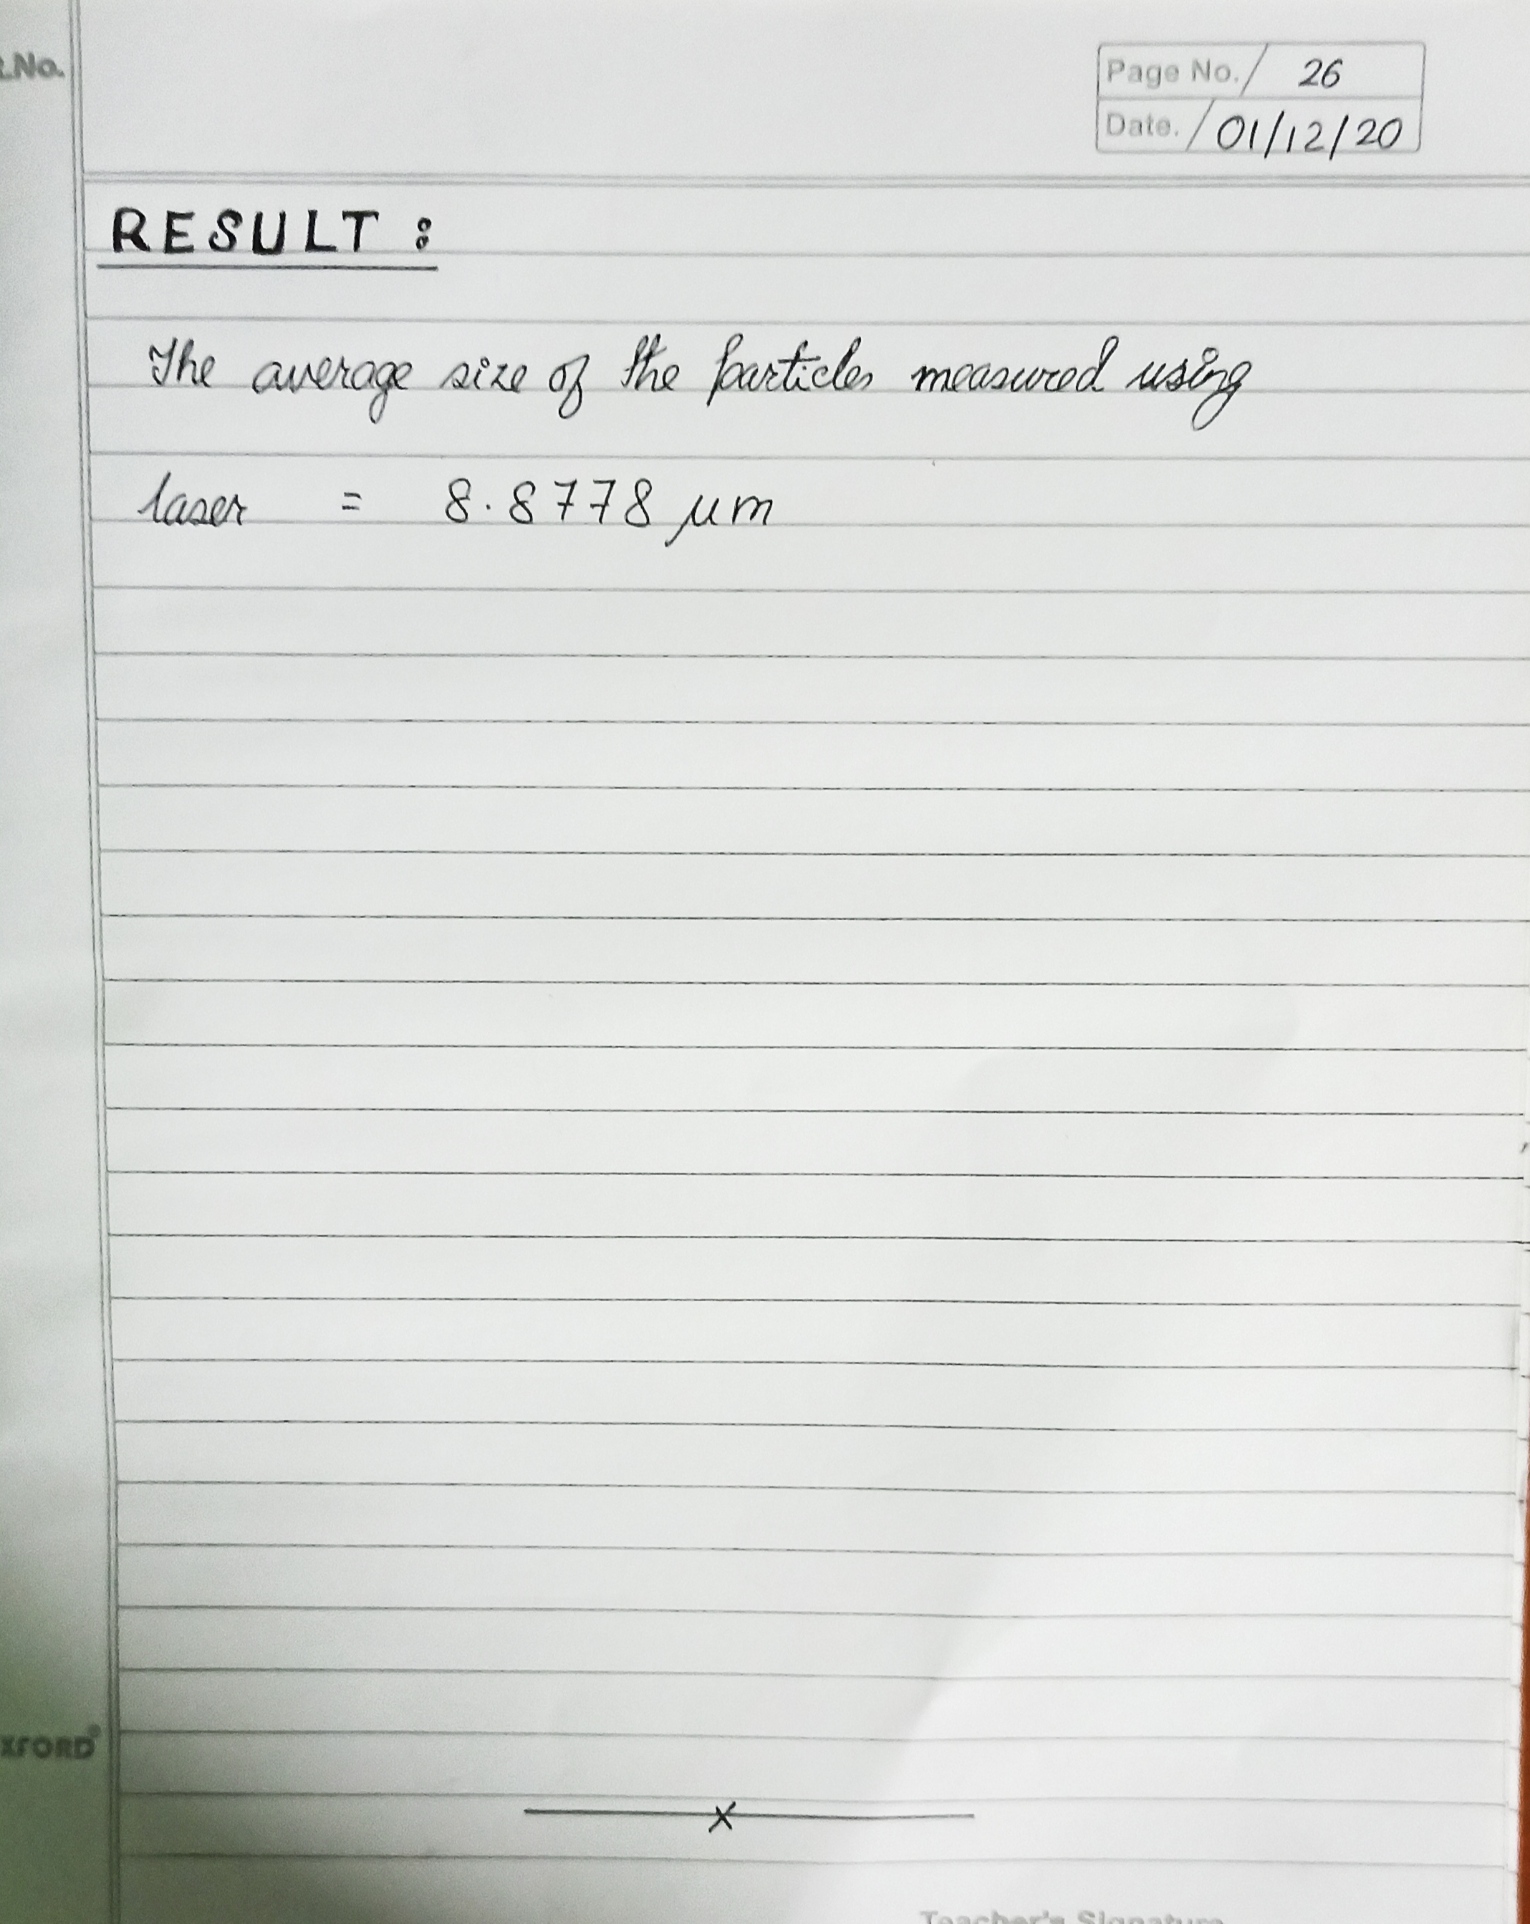 .No.
Page No. 26
Date. 01/12/20
RESULT :
The average size of the particles measured using
laser = 8.8778 μm
XFORD®
x
Teacher's Signature